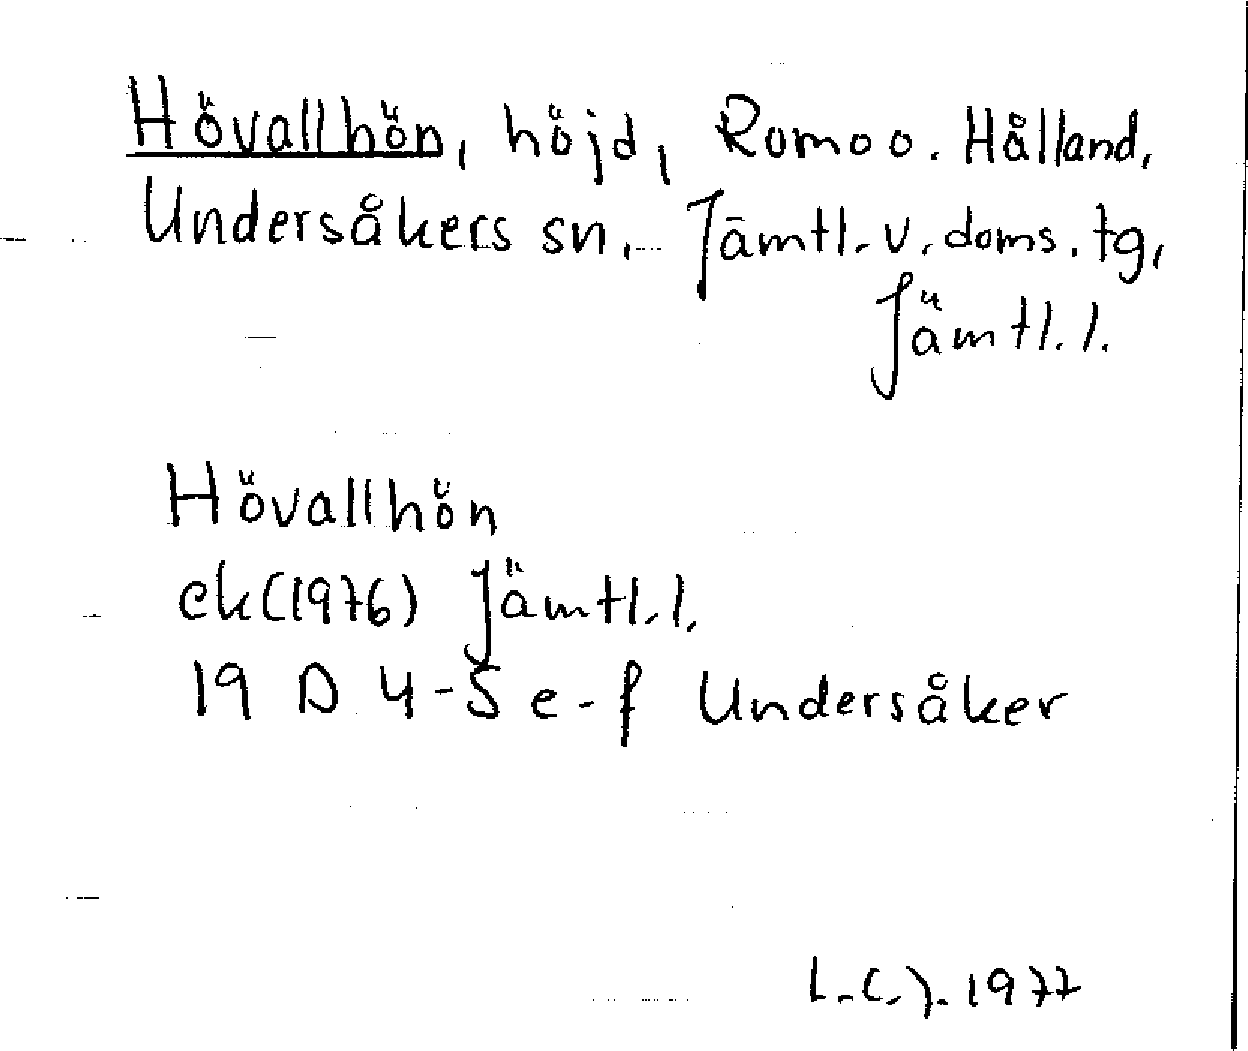 Hövallhön, höjd, Romo o. Hålland,
Undersåkers sn, Jämtl. v. doms. tg,
Jämtl. l.
Hövallhön
ek (1976) Jämtl. l.
19 D 4-5 e-f Undersåker
L.C.J. 1977